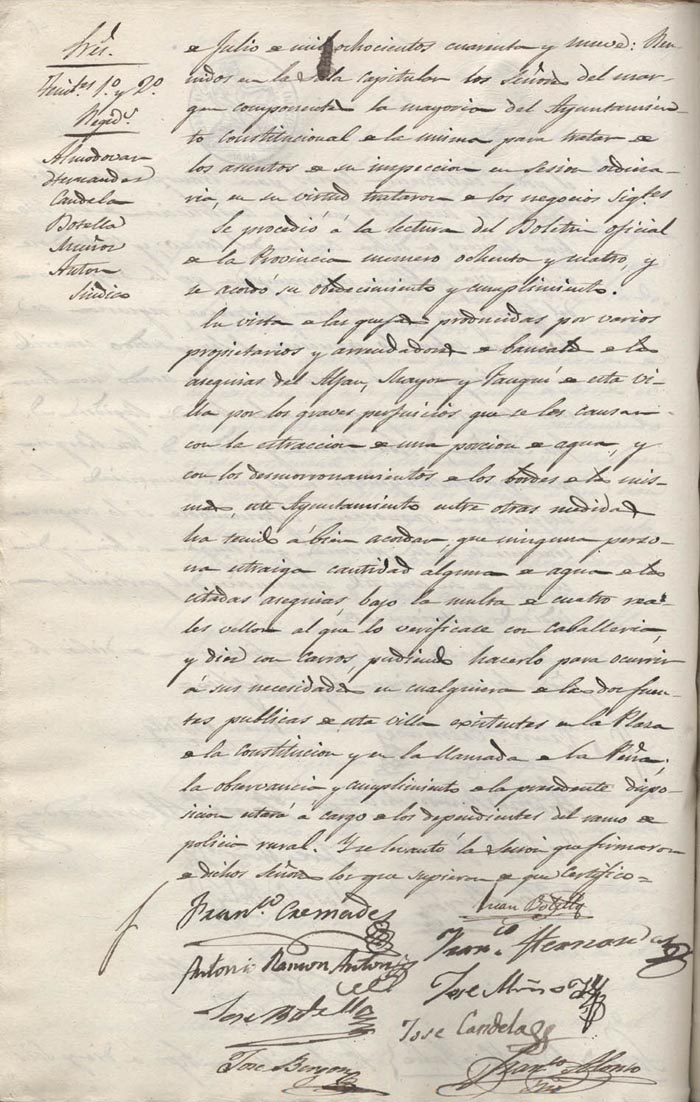 Sres.
Tenites. 1º. y 2º.
Regids.
Almodovar
Hernandez
Candela
Botella
Muñoz
Anton
Sindico
e Julio e mil ochocientos cuarenta y nueve: Reu-
nidos en la Sala Capitular los Señores del mar-
gen componentes la mayoria del Ayuntamien-
to constitucional e la misma para tratar e
los asuntos e su inspeccion en sesion ordina-
ria, en su virtud trataron e los negocios sigtes
Se procedió á la lectura del Boletin oficial
e la Provincia numero ochenta y cuatro, y
se acordó su obedecimiento y cumplimiento.
En vista e las quejas producidas por varios
propietarios y arrendadores e bancales e las
asequias del Alfau, Mayor y Fauquí e esta vi-
lla por los graves perjuicios que se les causan
con la estraccion e una porcion e agua, y
con los desmorronamientos e los bordes e las mis-
mas, este Ayuntamiento entre otras medidas
ha tenido á bien acordar, que ninguna perso-
na estraiga cantidad alguna e agua e las
citadas asequias, bajo la multa e cuatro rea-
les vellon al que lo verificase con caballeria,
y diez con carros, pudiendo hacerlo para ocurrir
á sus necesidades en cualquiera e las dos fuen-
tes publicas e esta villa existentes en la Plaza
e la Constitucion y en la llamada e la
la observancia y cumplimiento e la precedente dispo-
sicion estará á cargo e los dependientes del ramo e
policia rural. Y se levantó la sesion que firmaron
e dichos Señores los que supieron e que Certifico=
Juan Botella
Franco. Cremades
Franco. Hernandez
Antonio Ramon Anton
Jose Muñoz
Jose Botella
Jose Candela
Jose
Franco. Alfonso
Srio